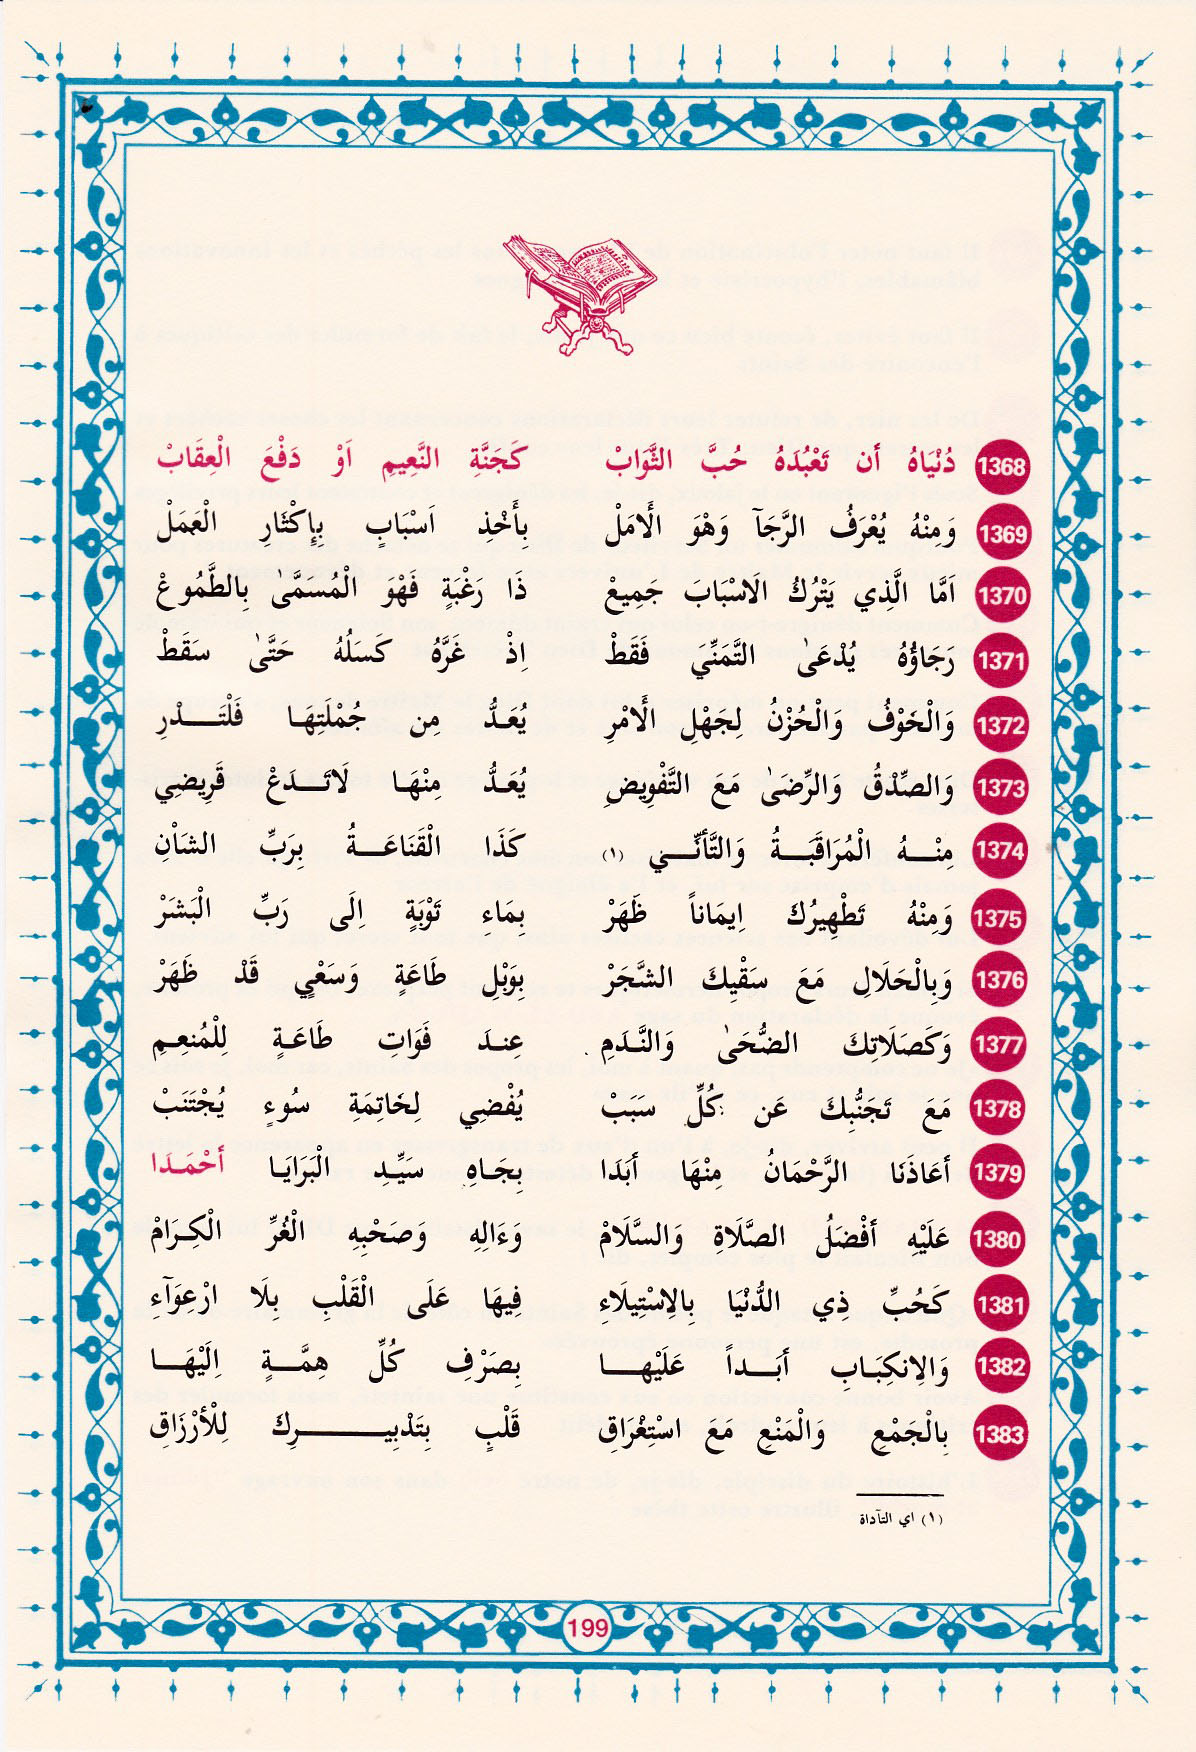 1368 دُنْيَاهُ أن تَعْبُدَهُ حُبَّ الثَّوَابْ كَجَنَّةِ النَّعِيمِ اَوْ دَفْعَ الْعِقَابْ
1369 وَمِنْهُ يُعْرَفُ الرَّجَآ وَهْوَ الْأَمَلْ بِأَخْذِ اَسْبَابٍ بِإِكْثَارِ الْعَمَلْ
1370 اَمَّا الَّذِي يَتْرُكُ الَاسْبَابَ جَمِيعْ ذَا رَغْبَةٍ فَهْوَ الْمُسَمَّىٰ بِالطَّمُوعْ
1371 رَجَاؤُهُ يُدْعَىٰ التَّمَنِّيَ فَقَطْ اِذْ غَرَّهُ كَسَلُهُ حَتَّىٰ سَقَطْ
1372 وَالْخَوْفُ وَالْحُزْنُ لِجَهْلِ الْأَمْرِ يُعَدُّ مِن جُمْلَتِهَا فَلْتَـــدْرِ
1373 وَالصِّدْقُ وَالرِّضَىٰ مَعَ التَّفْوِيضِ يُعَدُّ مِنْهَـا لَاتَـــدَعْ قَرِيضِي
1374 مِنْـــهُ الْمُرَاقَبَـــةُ وَالتَّأنِّـــي (١) كَذَا الْقَنَاعَـــةُ بِرَبِّ الشَاْنِ
1375 وَمِنْهُ تَطْهِيرُكَ اِيمَاناً ظَهَرْ بِمَاءِ تَوْبَةٍ اِلَى رَبِّ الْبَشَرْ
1376 وَبِالْحَلَالِ مَعَ سَقْيِكَ الشَّجَرْ بِوَبْلِ طَاعَةٍ وَسَعْيٍ قَدْ ظَهَرْ
1377 وَكَصَلَاتِكَ الضُّحَىٰ وَالنَّدَمِ عِنـدَ فَوَاتِ طَاعَـةٍ لِلْمُنعِـمِ
1378 مَعَ تَجَنُّبِكَ عَن كُلِّ سَبَبْ يُفْضِي لِخَاتِمَةِ سُوءٍ يُجْتَنَبْ
1379 أعَاذَنَا الرَّحْمَانُ مِنْهَا أبَدَا بِجَاهِ سَيِّدِ الْبَرَايَا أحْمَـدَا
1380 عَلَيْهِ أفْضَلُ الصَّلَاةِ وَالسَّلَامْ وَءَالِهِ وَصَحْبِهِ الْغُرِّ الْكِرَامْ
1381 كَحُبِّ ذِي الدُّنْيَا بِالِاسْتِيلَاءِ فِيهَا عَلَى الْقَلْبِ بِلَا ارْعِوَآءِ
1382 وَالِانكِبَـابِ أبَـــداً عَلَيْهـــا بِصَرْفِ كُلِّ هِمَّـــةٍ اِلَيْهَـــا
1383 بِالْجَمْعِ وَالْمَنْعِ مَعَ اسْتِغْرَاقِ قَلْبٍ بِتَدْبِيـــــرِكَ لِلْأرْزَاقِ
(١) اي التآداة
199